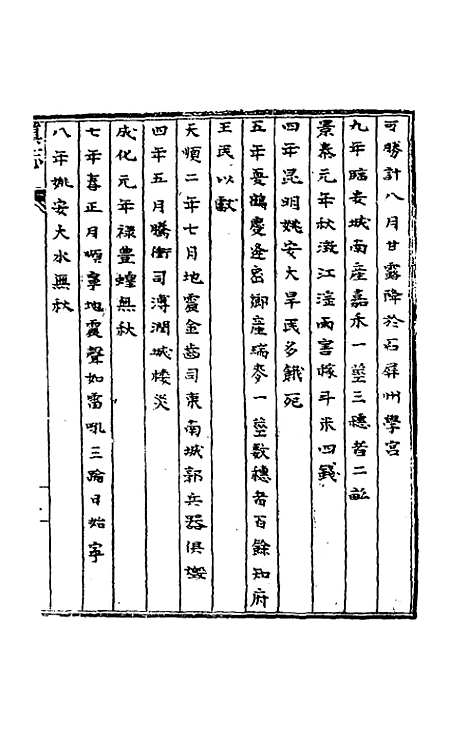 可勝計八月甘露降於石屏州學宮
九年臨安城南産嘉禾一莖三穗者二畝
景泰元年秋澂江滛雨害稼斗米四錢
四年昆明姚安大旱民多餓死
五年夏鶴慶逢宻鄉産瑞麥一莖數穗者百餘知府
王民以獻
天順二年七月地震金齒司東南城郭兵器俱燬
四年五月騰衝司溥潤城楼災
成化元年禄豊蝗無秋
七年春正月順寧地震聲如雷吼三踰日始寧
八年姚安大水無秋
滇志